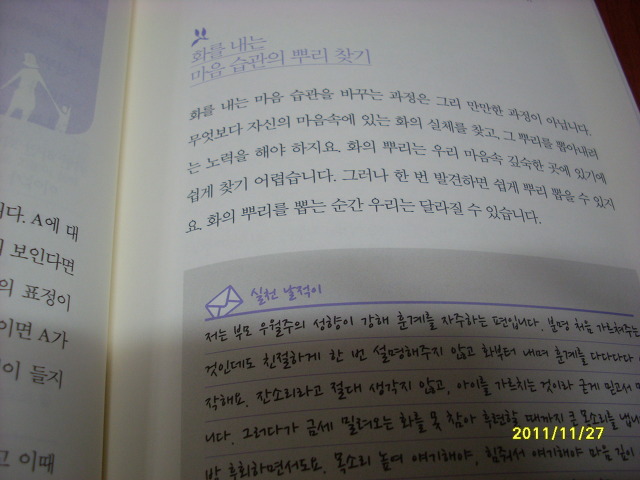 다. A에 대
보인다면
의 표정이
이면 A가
이 들지
고 이때
화를 내는
마음 습관의 뿌리 찾기
화를 내는 마음 습관을 바꾸는 과정은 그리 만만한 과정이 아닙니다.
무엇보다 자신의 마음속에 있는 화의 실체를 찾고, 그 뿌리를 뽑아내려
는 노력을 해야 하지요. 화의 뿌리는 우리 마음속 깊숙한 곳에 있기에
쉽게 찾기 어렵습니다. 그러나 한 번 발견하면 쉽게 뿌리 뽑을 수 있지
요. 화의 뿌리를 뽑는 순간 우리는 달라질 수 있습니다.
실천 날적이
저는 부모 우월주의 성향이 강해 훈계를 자주하는 편입니다. 분명 처음 가르쳐주는
것인데도 친절하게 한 번 설명해주지 않고 화부터 내며 훈계를 다다다다
작해요. 잔소리라고 절대 생각지 않고, 아이를 가르치는 것이라 굳게 믿고서
니다. 그러다가 금세 밀려오는 화를 못 참아 후련할 때까지 큰 목소리를 냅니
방 후회하면서도요. 목소리 높여 얘기해야, 힘줘서 얘기해야 마음 깊이
2011/11/27